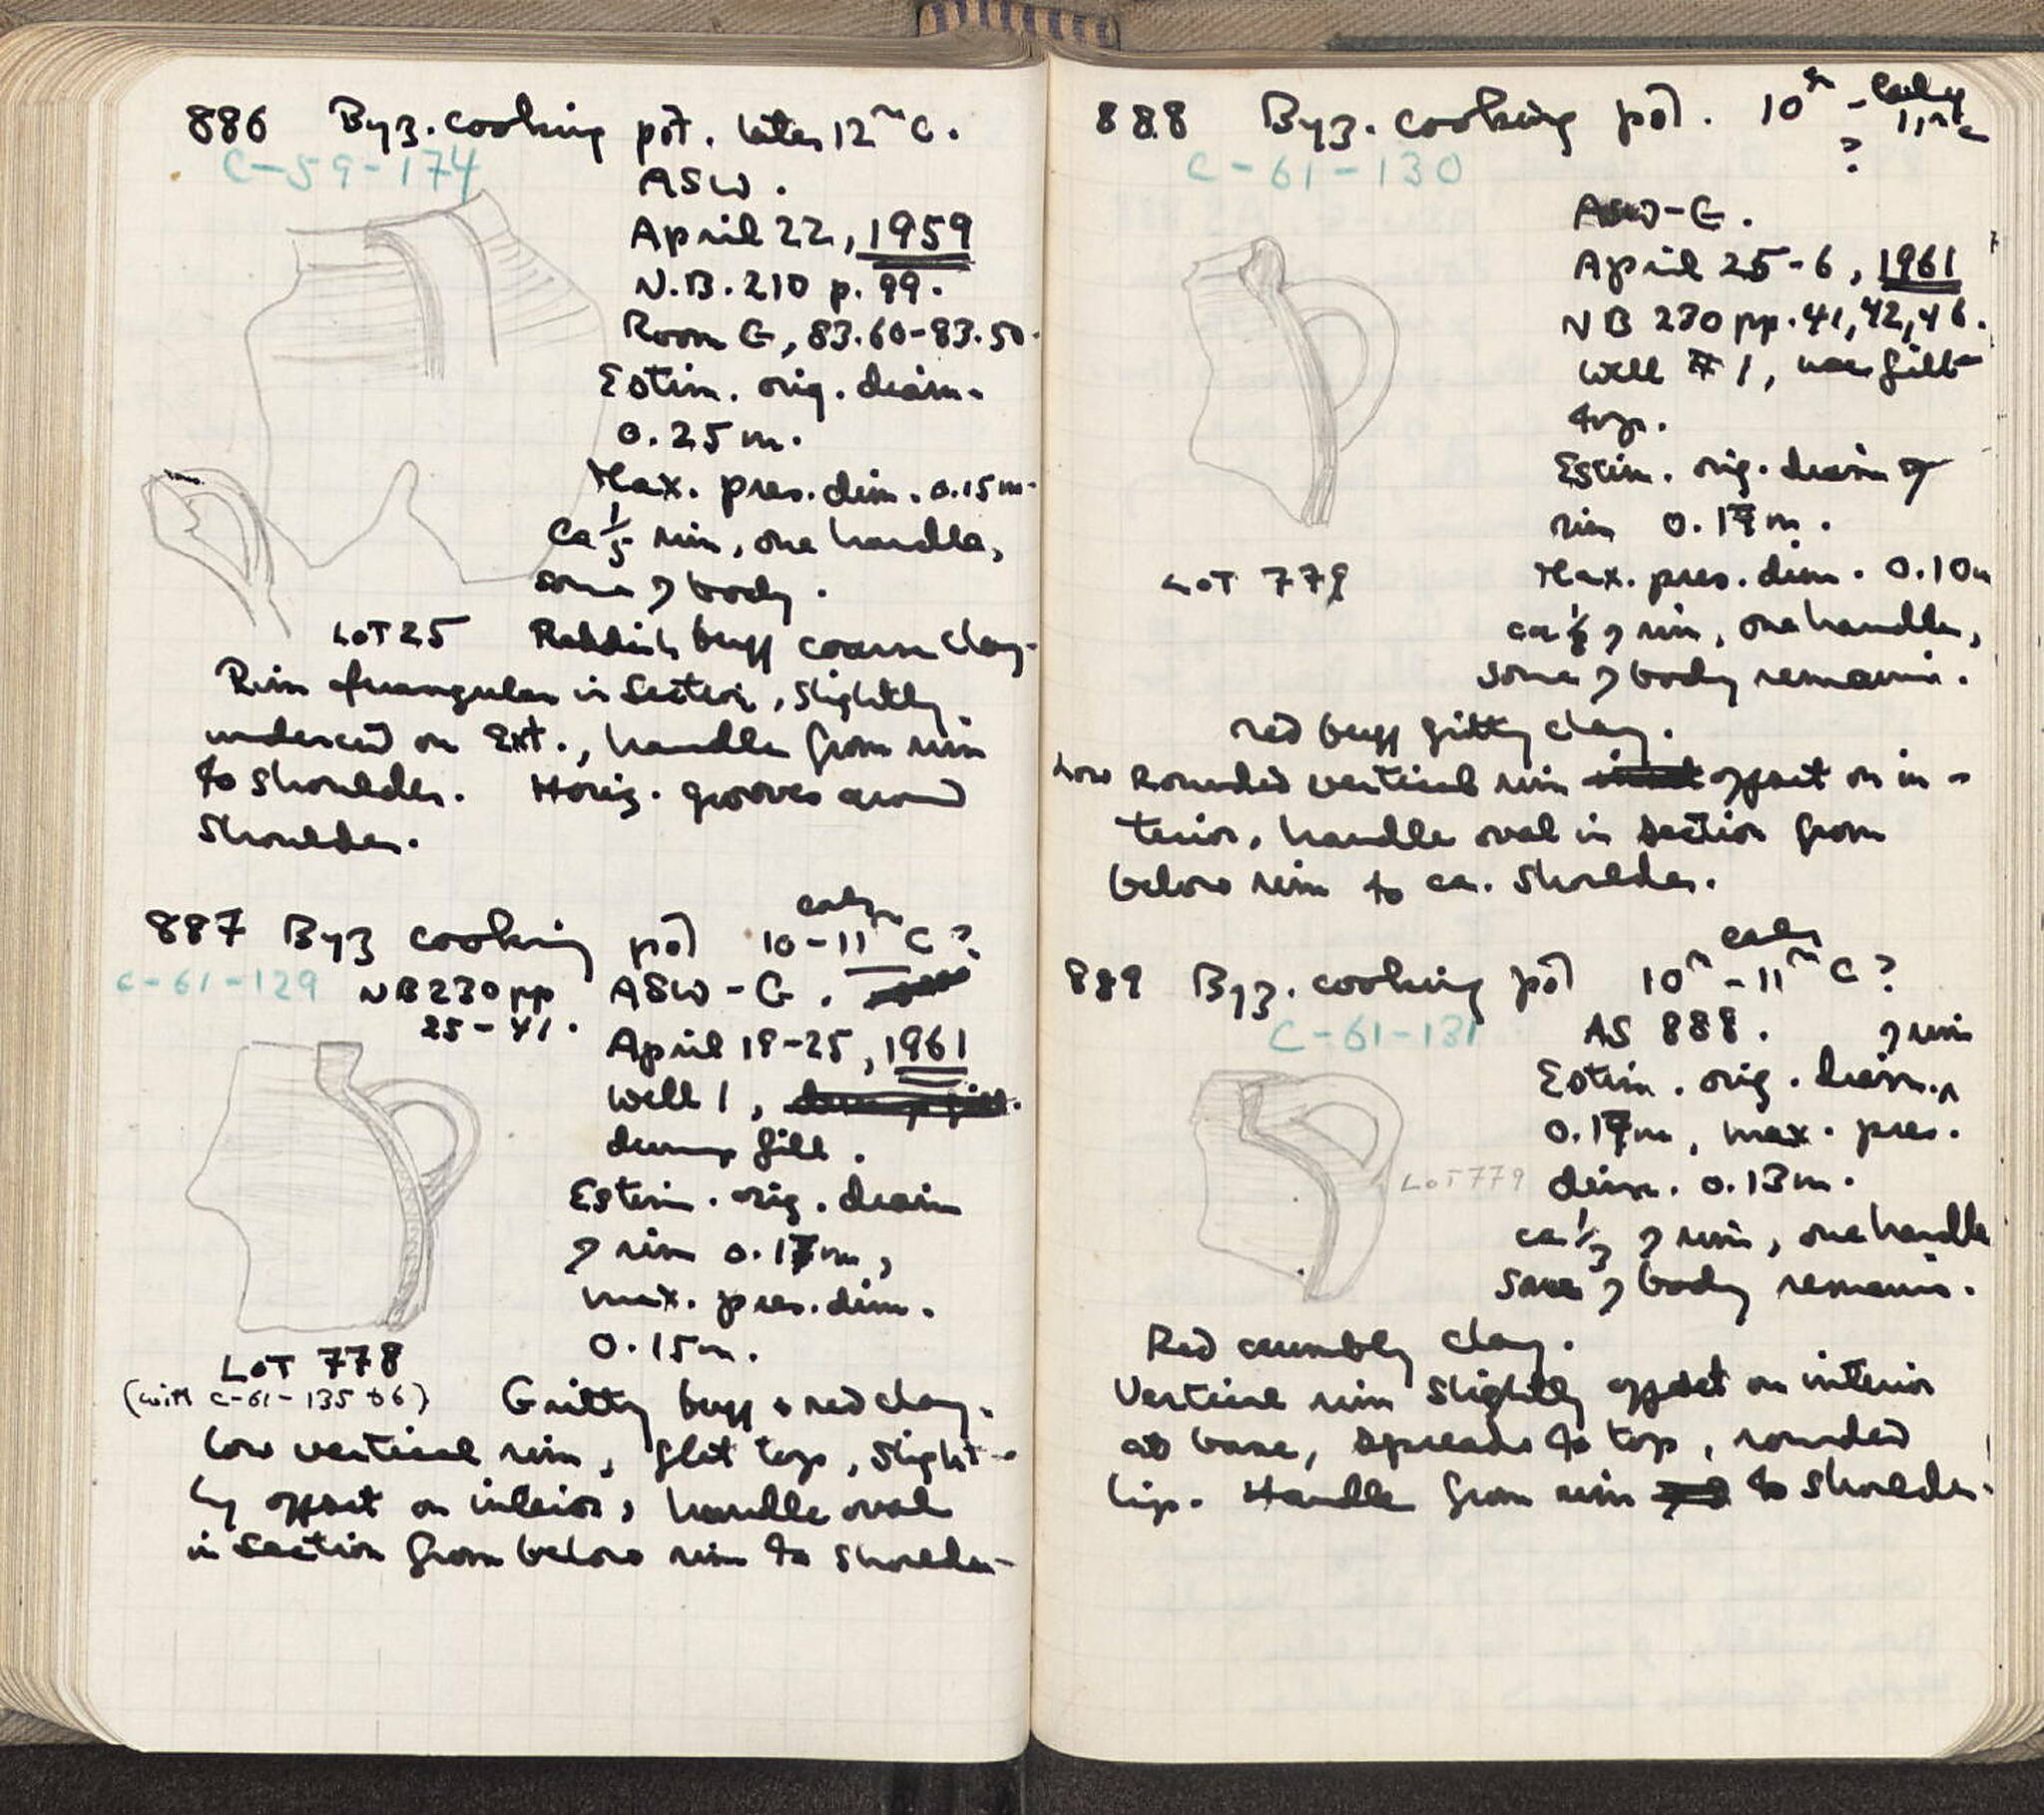 886 Byz. cooking pot. later 12th C.
C-59-174
ASW.
April 22, 1959
N.B. 210 p. 99.
Room G, 83.60-83.50.
Estim. orig. diam.
0.25 m.
Max. pres. dim. 0.15 m.
Ca 1/5 rim, one handle,
some of body.
LOT 25 Reddish buff coarse clay.
Rim triangular in section, slightly
undercut on Ext., handle from rim
to shoulder. Horiz. grooves around
shoulder.
887 Byz cooking pot 10-early 11th C?
C-61-129 NB 230 pp
25-41.
ASW-G.
April 19-25, 1961
Well 1,
dump fill.
Estim. orig. diam
of rim 0.17m,
max. pres. dim.
0.15m.
LOT 778
(with C-61-135 + 6) Gritty buff + red clay.
Low vertical rim, flat top, slight-
ly offset on interior, handle oval
in section from below rim to shoulder.
888 Byz. cooking pot. 10th - early
11th c
?
C-61-130
ASW-G.
April 25-6, 1961
NB 230 pp. 41, 42, 46.
Well #1, fill
top.
Estim. orig. diam of
rim 0.17m.
LOT 779 Max. pres. dim. 0.10m
ca of rim, one handle,
some of body remains.
red buff gritty clay.
Low Rounded vertical rim offset on in-
terior, handle oval in section from
below rim to ca. shoulder.
889 Byz. cooking pot 10th - early 11th C?
C-61-131
AS 888.
Estim. orig. diam. of rim
0.17m, max. pres.
LOT 779 dim. 0.13m.
ca 1/3 of rim, one handle
some of body remains.
Red crumbly clay.
Vertical rim slightly offset on interior
at base, spreads to top, rounded
lip. Handle from rim to shoulder.